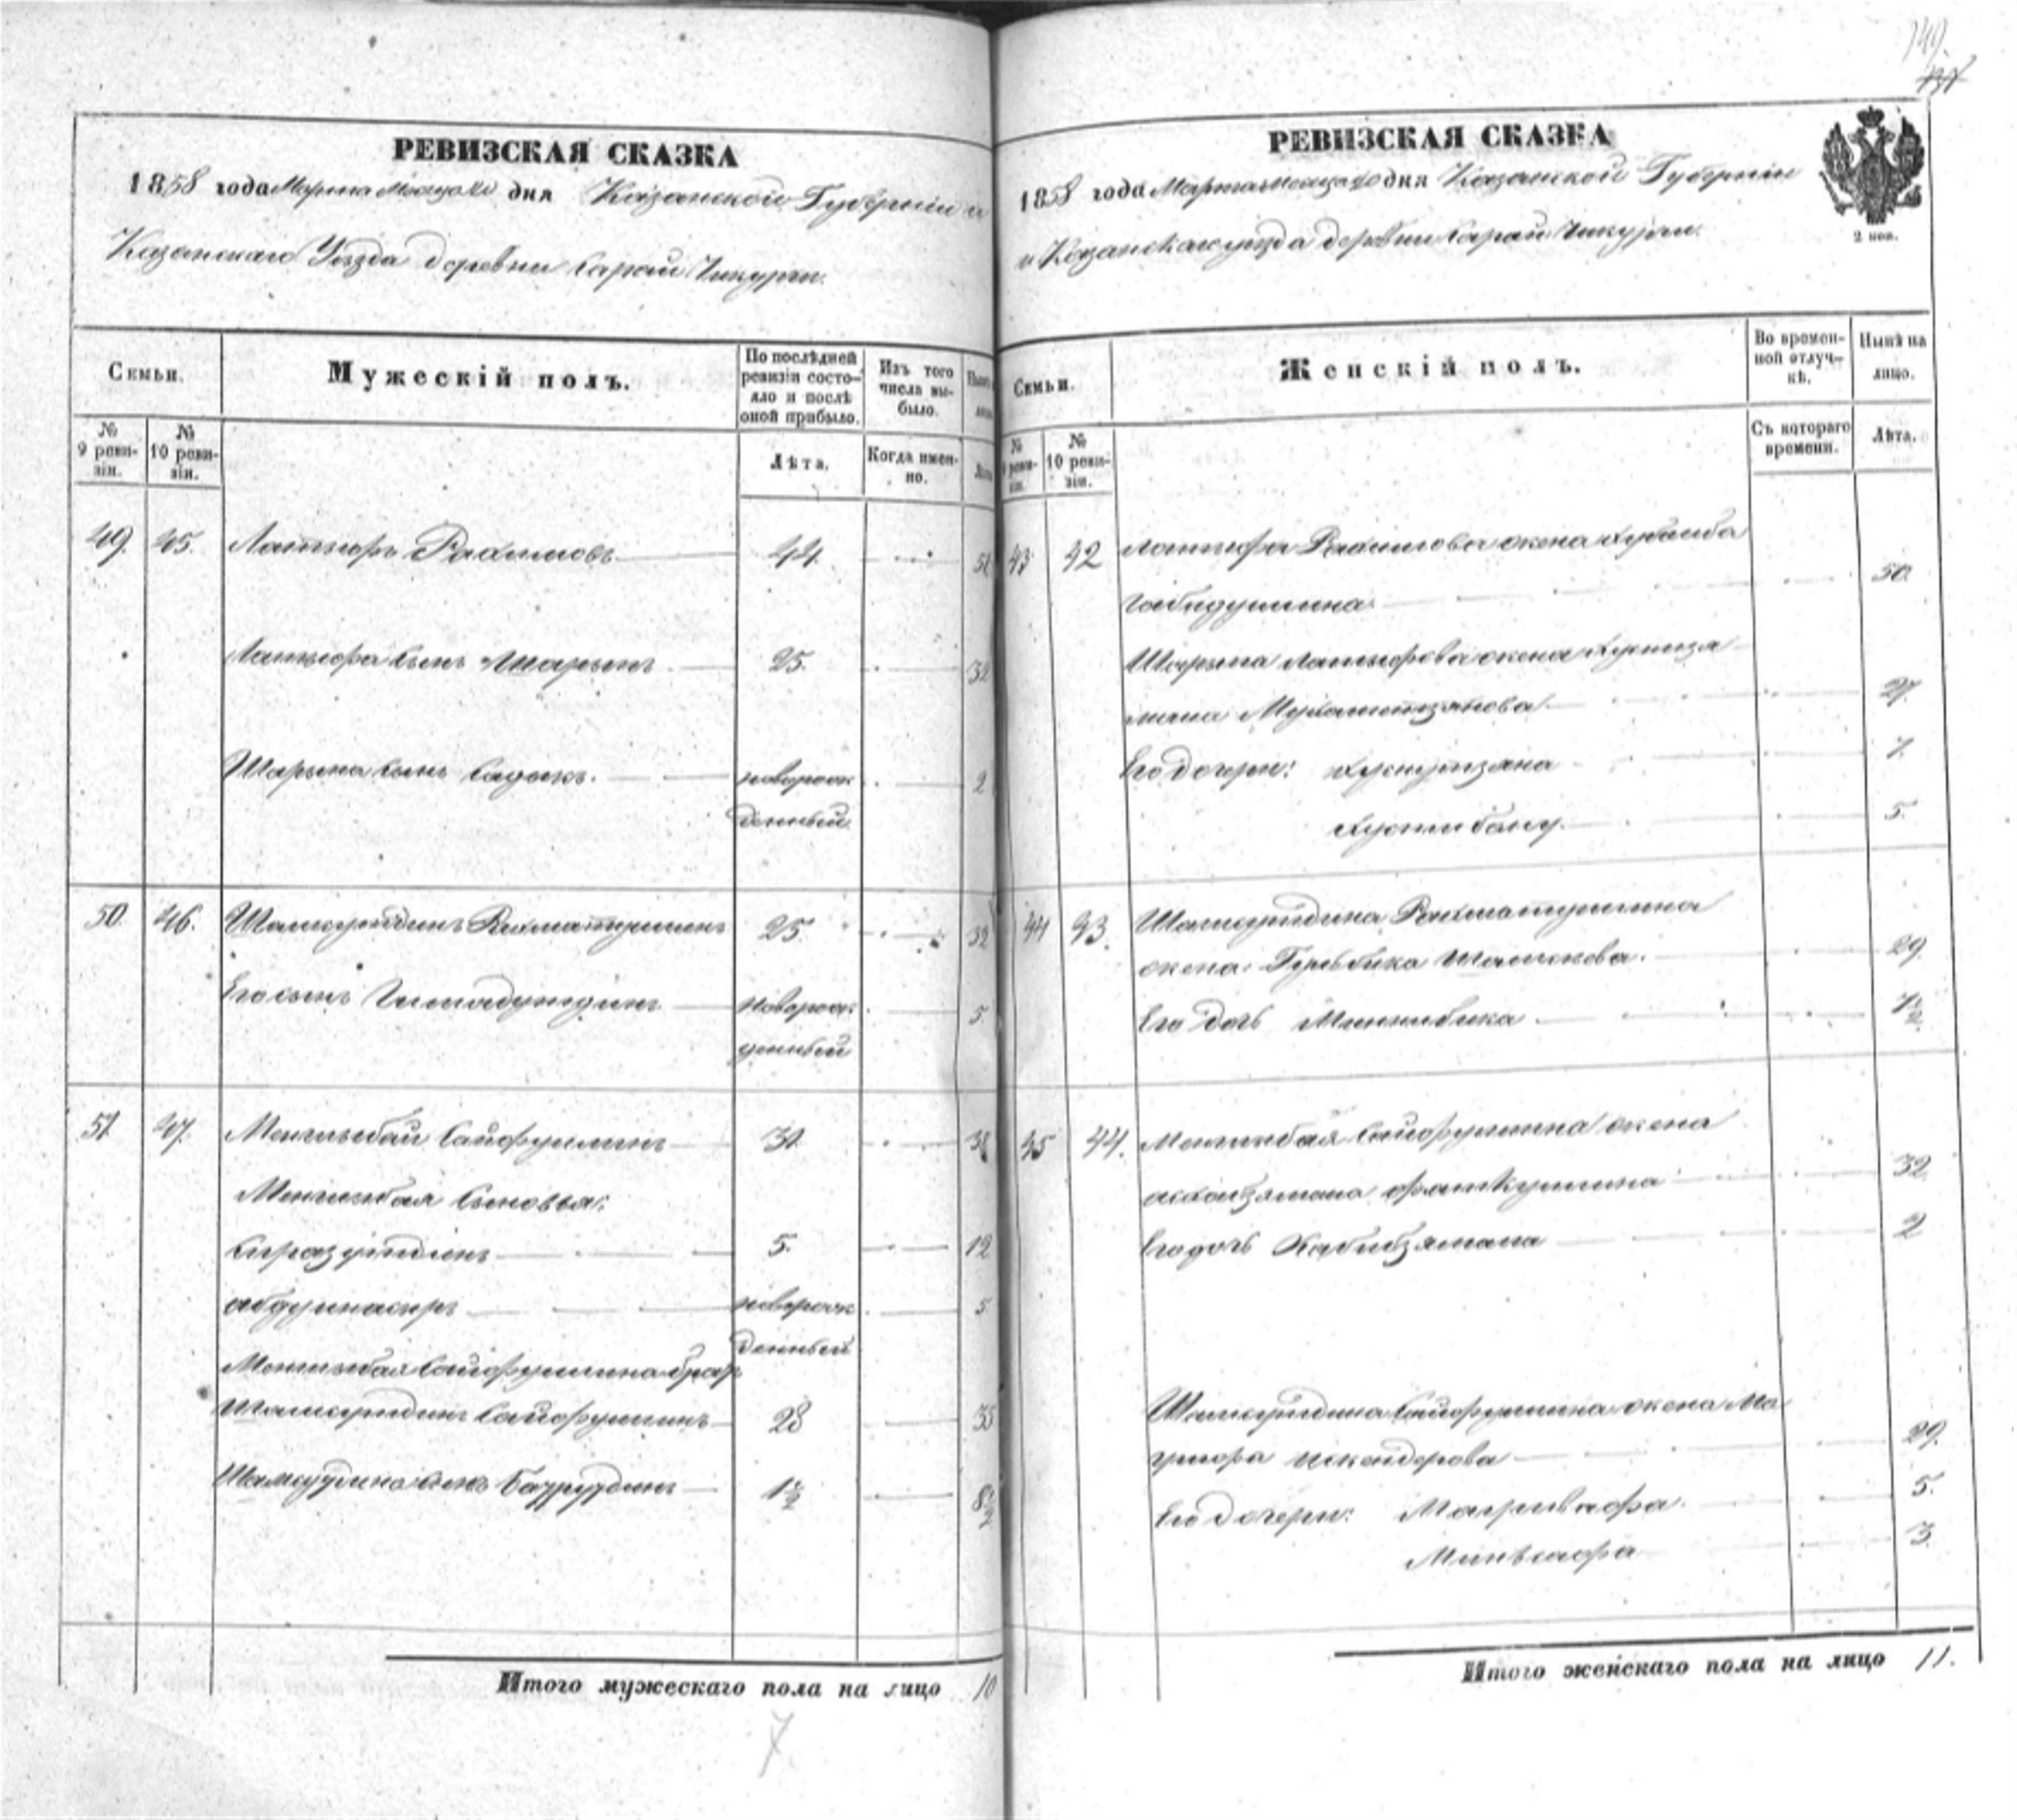 149.
РЕВИЗСКАЯ СКАЗКА
1858 года Марта Месяца дня Казанской Губернии и
Казанскаго Уѣзда деревни Сарай Чикурчи.
Семьи.
Мужескій полъ.
По послѣдней ревизіи состояло и послѣ оной прибыло.
Изъ того числа выбыло.
№ 9 ревизіи.
№ 10 ревизіи.
Лѣта.
Когда именно.
49. 45. Латыфъ Рахимовъ 44. 51
Латыфа сынъ Шарыпъ 25. 32
Шарыпа сынъ Садыкъ. новорож 2
денный
50. 46. Шамсутдинъ Рахматуллинъ 25. 32
Его сынъ новорож 5
денный
51 47. Менглыбай Сайфуллинъ 31 38
Менглыбая сыновья:
Сиразутдинъ 5. 12
Абдулнасыръ новорож 5
денный
Менглыбая Сайфуллина брат
Шамсутдинъ Сайфуллинъ 28 35
Шамсутдина сынъ Бадрутдинъ 1½ 8½
Итого мужескаго пола на лицо 10
7
РЕВИЗСКАЯ СКАЗКА
1858 года Марта месяца дня Казанской Губерніи
и Казанскаго уѣзда деревни Сарай Чикурчи.
2 коп.
Семьи.
Женскій полъ.
Во временной отлучкѣ.
Нынѣ на лицо.
№ 9 ревизіи.
№ 10 ревизіи.
Съ котораго времени.
Лѣта.
43 42 Латыфа Рахимова жена Хубаиба
Габидуллина 50.
Шарыпа Латыфова жена
Мухаметзянова 27.
Его дочери: 7.
Хуснибану. 5.
44 43. Шамсутдина Рахматуллина
жена Гульбика 29.
Его дочь Миннибика ½
45 44. Менглибая Сайфуллина жена
Фаткуллина 32
Его дочь Хабибзямала 2
Шамсутдина Сайфуллина жена Ма
Искендерова 29.
Его дочери: 5.
3.
Итого женскаго пола на лицо 11.